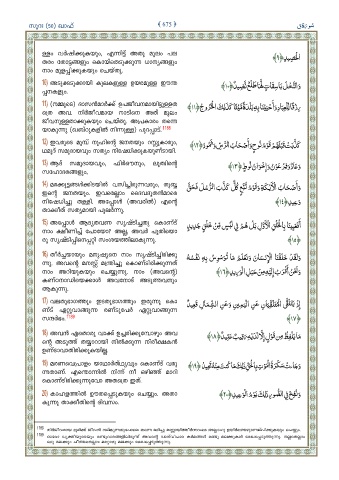 സൂറ (50) ഖാഫ്
﴾ 675 ﴿
سورة ق
ള്ളം വർഷിക്കുകയും, എന്നിട്ട് അതു മൂലം പല
തരം തോട്ടങ്ങളും കൊയ്തെടുക്കുന്ന ധാന്യങ്ങളും
നാം മുളപ്പിക്കുകയും ചെയ്തു.
الْحَصِيدِ ﴿٩﴾
10) അടുക്കടുക്കായി കുലകളുള്ള ഉയരമുള്ള ഈന്ത
പ്പനകളും.
وَالنَّخْلَ بَاسِقَاتٍ لَّهَا طَلْعٌ نَّضِيدٌ ﴿١٠﴾
11) (നമ്മുടെ) ദാസൻമാർക്ക് ഉപജീവനമായിട്ടുള്ളത
ത്രെ അവ. നിർജീവമായ നാടിനെ അത് മൂലം
ജീവനുള്ളതാക്കുകയും ചെയ്തു. അപ്രകാരം തന്നെ
യാകുന്നു (ഖബ്റുകളിൽ നിന്നുള്ള) പുറപ്പാട്.
رِزْقًا لِّلْعِبَادِ وَأَحْيَيْنَا بِهِ بَلْدَةً مَّيْتًا كَذَلِكَ الْخُرُوجُ ﴿١١﴾
12) ഇവരുടെ മുമ്പ് നൂഹിന്റെ ജനതയും റസ്സുകാരും,
ഥമൂദ് സമുദായവും സത്യം നിഷേധിക്കുകയുണ്ടായി.
كَذَّبَتْ قَبْلَهُمْ قَوْمُ نُوحٍ وَأَصْحَابُ الرَّسِّ وَثَمُودُ ﴿١٢﴾
13) ആദ് സമുദായവും, ഫിർഔനും, ലൂത്തിന്റെ
സഹോദരങ്ങളും,
وَعَادٌ وَفِرْعَوْنُ وَإِخْوَانُ لُوطٍ ﴿١٣﴾
14) മരക്കൂട്ടങ്ങൾക്കിടയിൽ വസിച്ചിരുന്നവരും, തുബ്ബ
ഇന്റെ ജനതയും. ഇവരെല്ലാം ദൈവദൂതൻമാരെ
നിഷേധിച്ചു തള്ളി. അപ്പോൾ (അവരിൽ) എന്റെ
താക്കീത് സത്യമായി പുലർന്നു.
وَأَصْحَابُ الْأَيْكَةِ وَقَوْمُ تُبَّعٍ كُلٌّ كَذَّبَ الرُّسُلَ فَحَقَّ
وَعِيدِ ﴿١٤﴾
15) അപ്പോൾ ആദ്യതവണ സൃഷ്ടിച്ചതു കൊണ്ട്
നാം ക്ഷീണിച്ച് പോയോ? അല്ല, അവർ പുതിയൊ
രു സൃഷ്ടിപ്പിനെപ്പറ്റി സംശയത്തിലാകുന്നു.
أَفَعَيِينَا بِالْخَلْقِ الْأَوَّلِ بَلْ هُمْ فِي لَبْسٍ مِّنْ خَلْقٍ جَدِيدٍ
﴿١٥﴾
16) തീർച്ചയായും മനുഷ്യനെ നാം സൃഷ്ടിച്ചിരിക്കു
ന്നു. അവന്റെ മനസ്സ് മന്ത്രിച്ചു കൊണ്ടിരിക്കുന്നത്
നാം അറിയുകയും ചെയ്യുന്നു. നാം (അവന്റെ)
കണ്ഠനാഡിയെക്കാൾ അവനോട് അടുത്തവനും
ആകുന്നു.
وَلَقَدْ خَلَقْنَا الْإِنسَانَ وَنَعْلَمُ مَا تُوَسْوِسُ بِهِ نَفْسُهُ
وَنَحْنُ أَقْرَبُ إِلَيْهِ مِنْ حَبْلِ الْوَرِيدِ ﴿١٦﴾
17) വലതുഭാഗത്തും ഇടതുഭാഗത്തും ഇരുന്നു കൊ
ണ്ട് ഏറ്റുവാങ്ങുന്ന രണ്ടുപേർ ഏറ്റുവാങ്ങുന്ന
സന്ദർഭം.
إِذْ يَتَلَقَّى الْمُتَلَقِّيَانِ عَنِ الْيَمِينِ وَعَنِ الشِّمَالِ قَعِيدٌ
﴿١٧﴾
18) അവൻ ഏതൊരു വാക്ക് ഉച്ചരിക്കുമ്പോഴും അവ
ന്റെ അടുത്ത് തയ്യാറായി നിൽക്കുന്ന നിരീക്ഷകൻ
ഉണ്ടാവാതിരിക്കുകയില്ല.
مَا يَلْفِظُ مِن قَوْلٍ إِلَّا لَدَيْهِ رَقِيبٌ عَتِيدٌ ﴿١٨﴾
19) മരണവെപ്രാളം യാഥാർത്ഥ്യവും കൊണ്ട് വരു
ന്നതാണ്. എന്തൊന്നിൽ നിന്ന് നീ ഒഴിഞ്ഞ് മാറി
കൊണ്ടിരിക്കുന്നുവോ അതത്രെ ഇത്.
وَجَاءَتْ سَكْرَةُ الْمَوْتِ بِالْحَقِّ ذَلِكَ مَا كُنتَ مِنْهُ تَحِيدُ ﴿١٩﴾
20) കാഹളത്തിൽ ഊതപ്പെടുകയും ചെയ്യും. അതാ
കുന്നു താക്കീതിന്റെ ദിവസം.
وَنُفِخَ فِي الصُّورِ ذَلِكَ يَوْمُ الْوَعِيدِ ﴿٢٠﴾